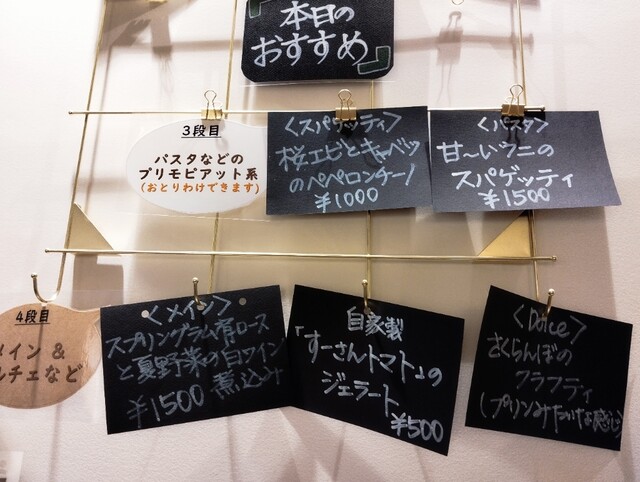 本日の
おすすめ
3段目
パスタなどの
プリモピアット系
(おとりわけできます)
〈スパゲッティ〉
桜エビとキャベツ
のペペロンチーノ
¥1000
〈パスタ〉
甘〜いウニの
スパゲッティ
¥1500
4段目
メイン &
ルチェなど
〈メイン〉
スプリングラム肩ロース
と夏野菜の白ワイン
¥1500 煮込み
自家製
「すーさんトマト」の
ジェラート
¥500
〈Dolce〉
さくらんぼの
クラフティ
(プリンみたいな感じ)